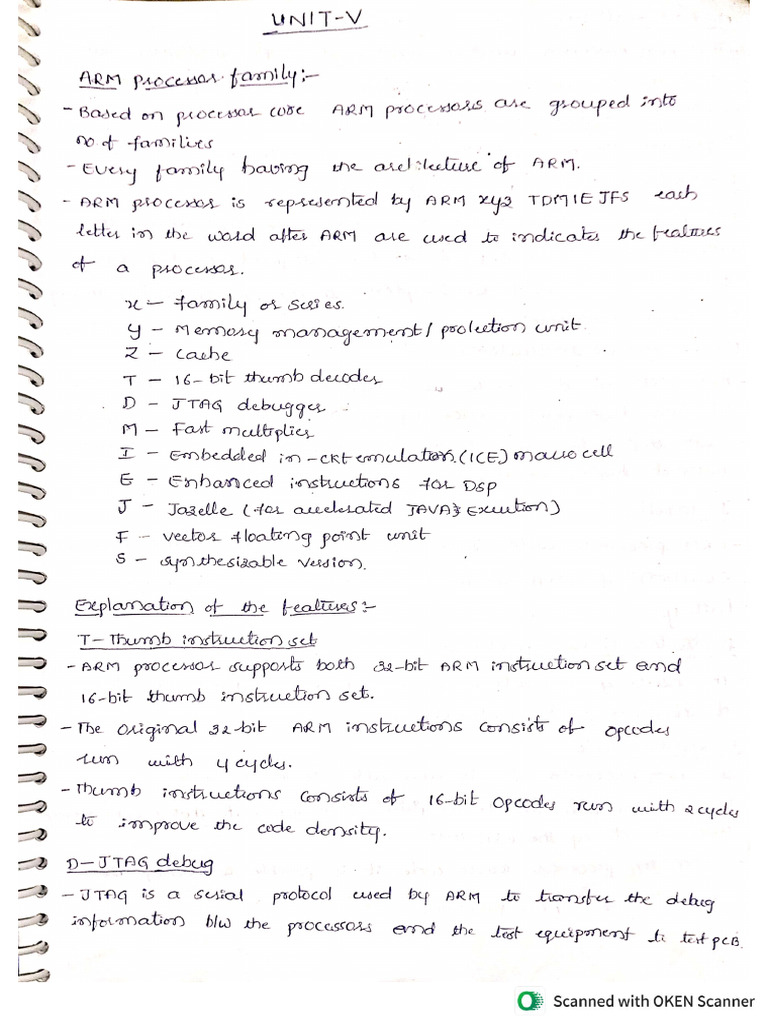 UNIT-V
ARM processor family:-
- Based on processor core ARM processors are grouped into
no of families
- Every family having the architecture of ARM.
- ARM processor is represented by ARM xyz TDMIEJFS each
letter in the word after ARM are used to indicates the features
of a processor.
x - family or series.
y - Memory management/protection unit.
Z - cache
T - 16-bit thumb decoder
D - JTAG debugger
M - Fast multiplier
I - Embedded in-CKT emulator.(ICE) macro cell
E - Enhanced instructions for DSP
J - Jazelle (for accelerated JAVA} Execution)
F - vector floating point unit
S - synthesizable version.
Explanation of the features:-
T-Thumb instruction set
- ARM processor supports both 32-bit ARM instruction set and
16-bit thumb instruction set.
- The original 32-bit ARM instructions consists of opcodes
run with 4 cycles.
- Thumb instructions consists of 16-bit opcodes run with 2 cycles
to improve the code density.
D-JTAG debug
- JTAG is a serial protocol used by ARM to transfer the debug
information b/w the processors and the test equipment to test PCB.
Scanned with OKEN Scanner